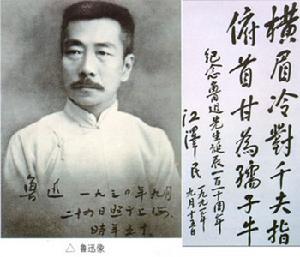 魯迅
一九三〇年九月
二十四日照于上海,
時年五十
△ 鲁迅像
橫眉冷對千夫指
俯首甘為孺子牛
紀念魯迅先生誕辰一百一十周年
江澤民
一九九一年
九月十五日